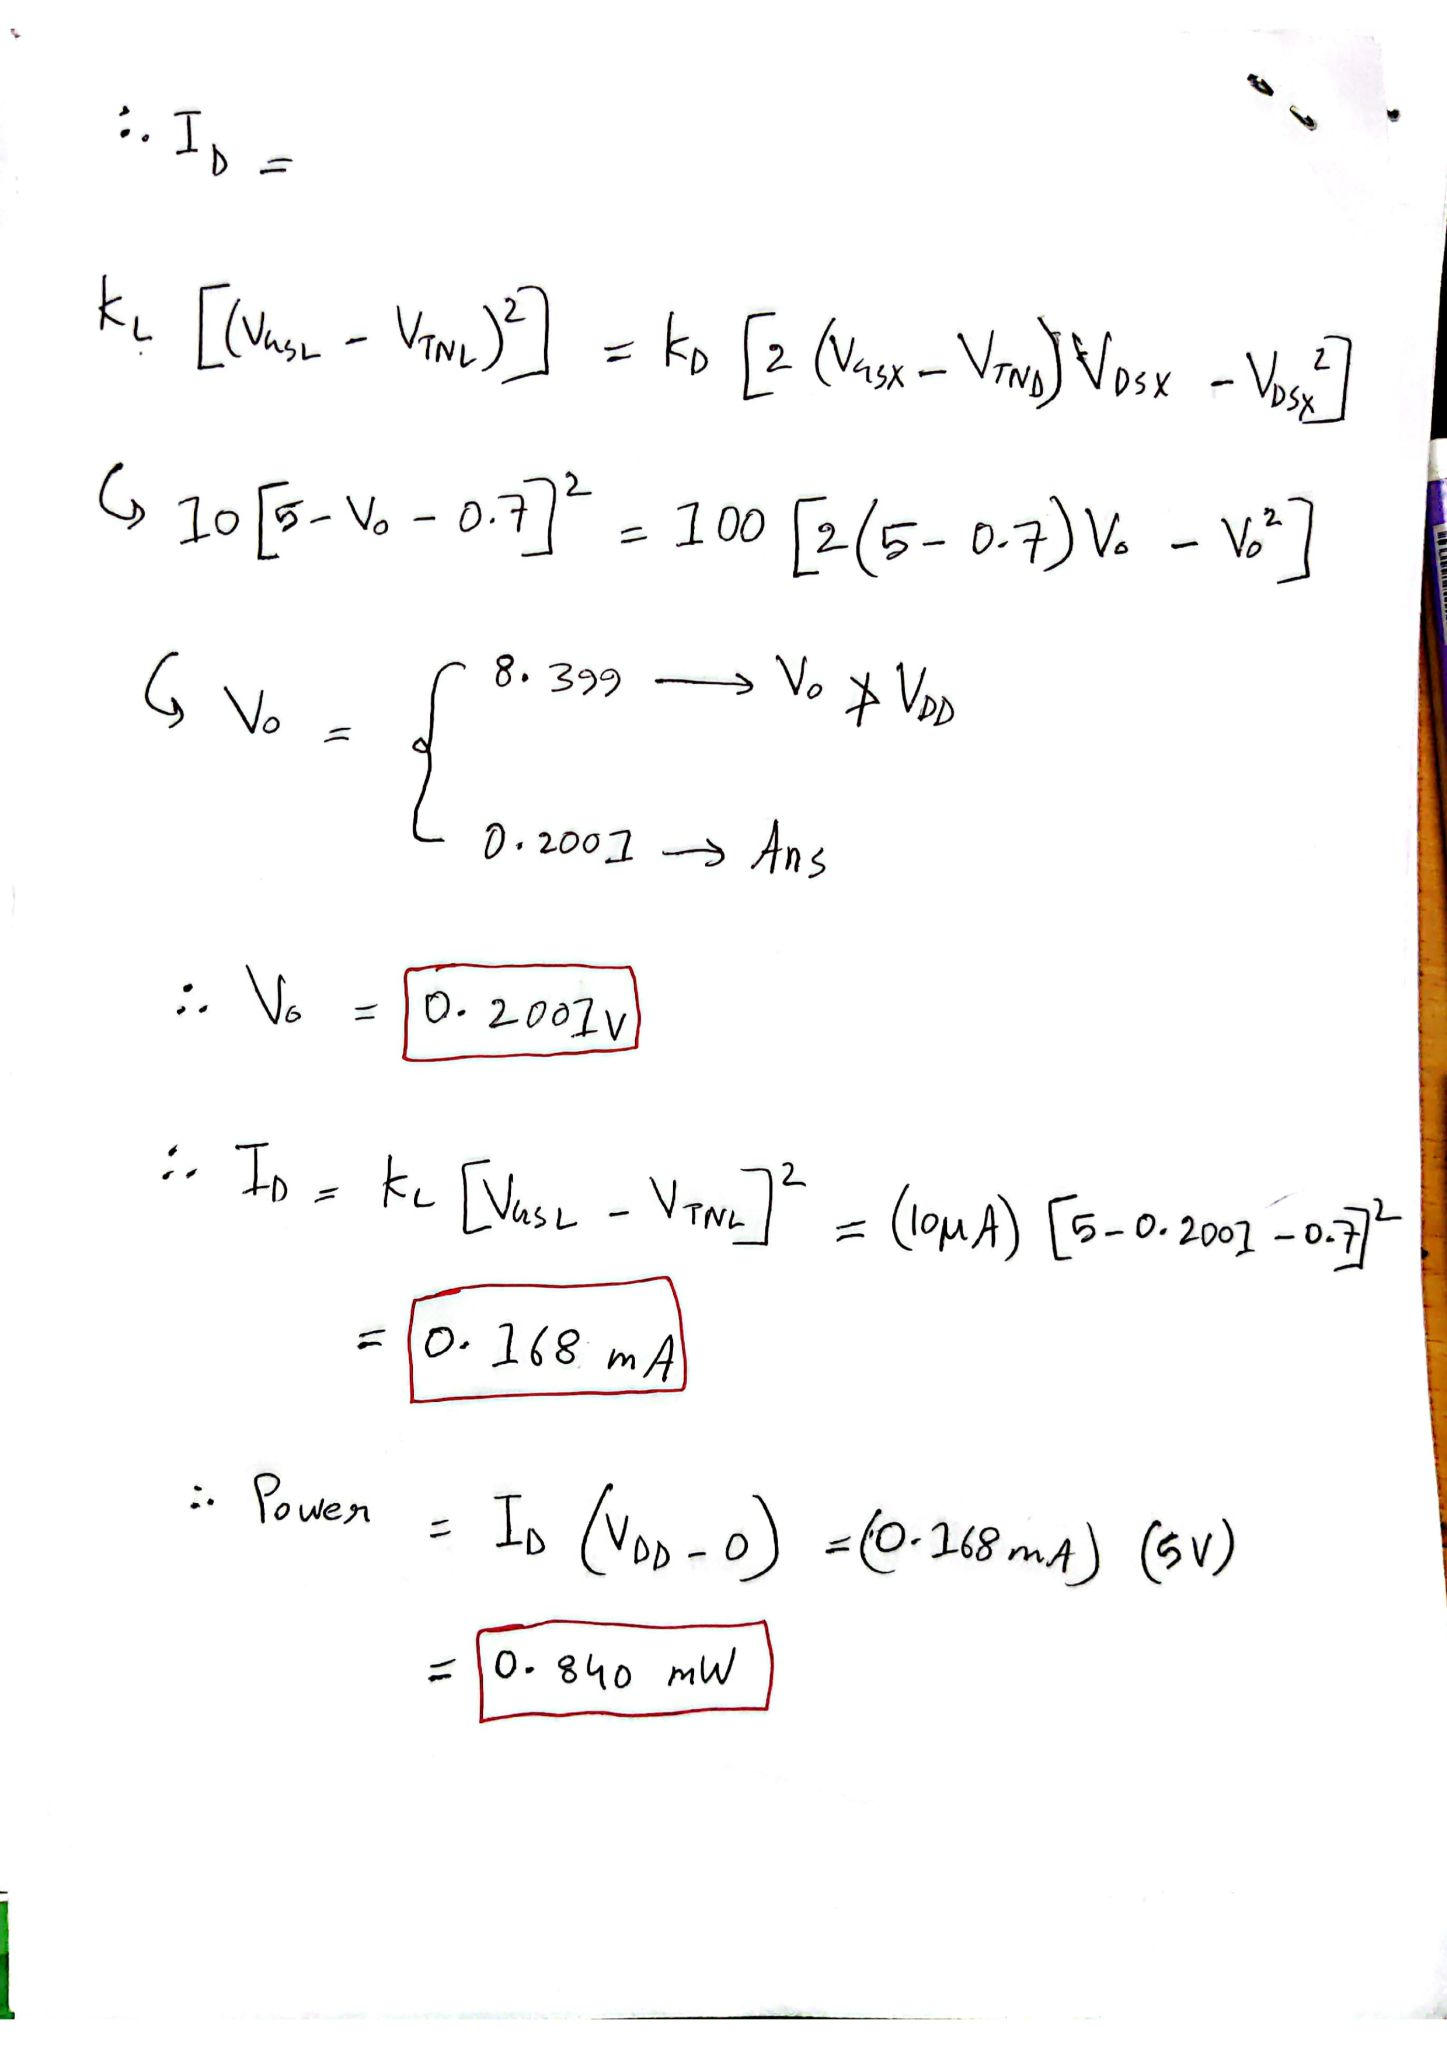 ∴ I_D =
K_L [(V_GSL - V_TNL)²] = K_D [2 (V_GSX - V_TND) V_DSX - V_DSX²]
↳ 10 [5 - V₀ - 0.7]² = 100 [2(5 - 0.7) V₀ - V₀²]
↳ V₀ = { 8.399 → V₀ ≯ V_DD
0.2001 → Ans
∴ V₀ = 0.2001V
∴ I_D = K_L [V_GSL - V_TNL]² = (10μA) [5 - 0.2001 - 0.7]²
= 0.168 mA
∴ Power = I_D (V_DD - 0) = (0.168 mA) (5V)
= 0.840 mW